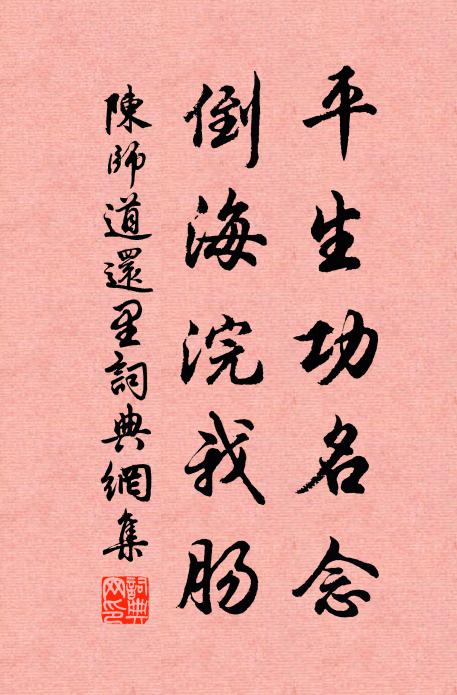 平生功名念
倒海浣我肠
陳師道還里詞典網集
詞典網印